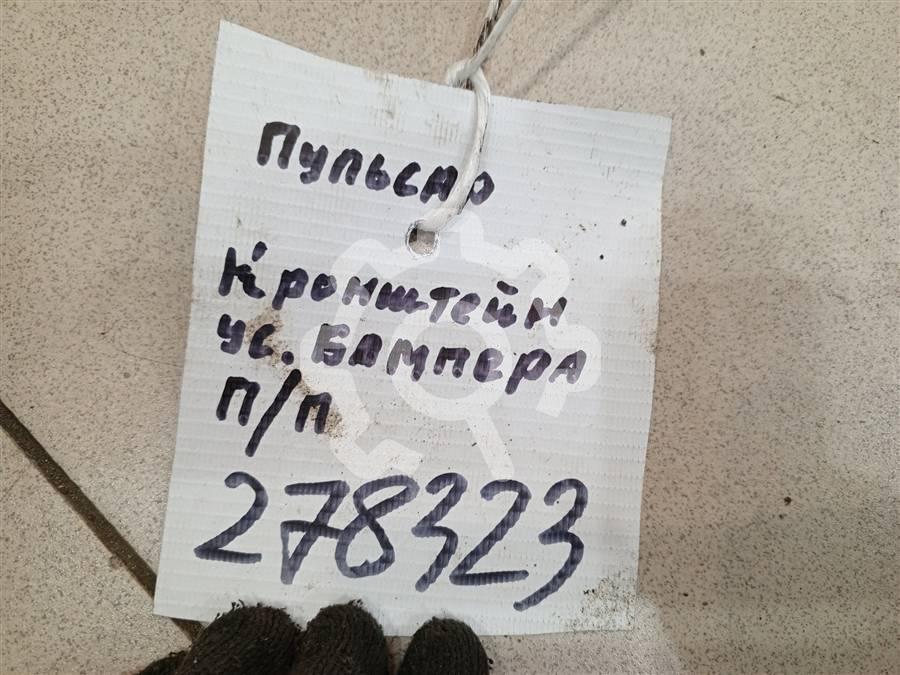 Пульсар
Кронштейн
ус. Бампера
п/п
278323